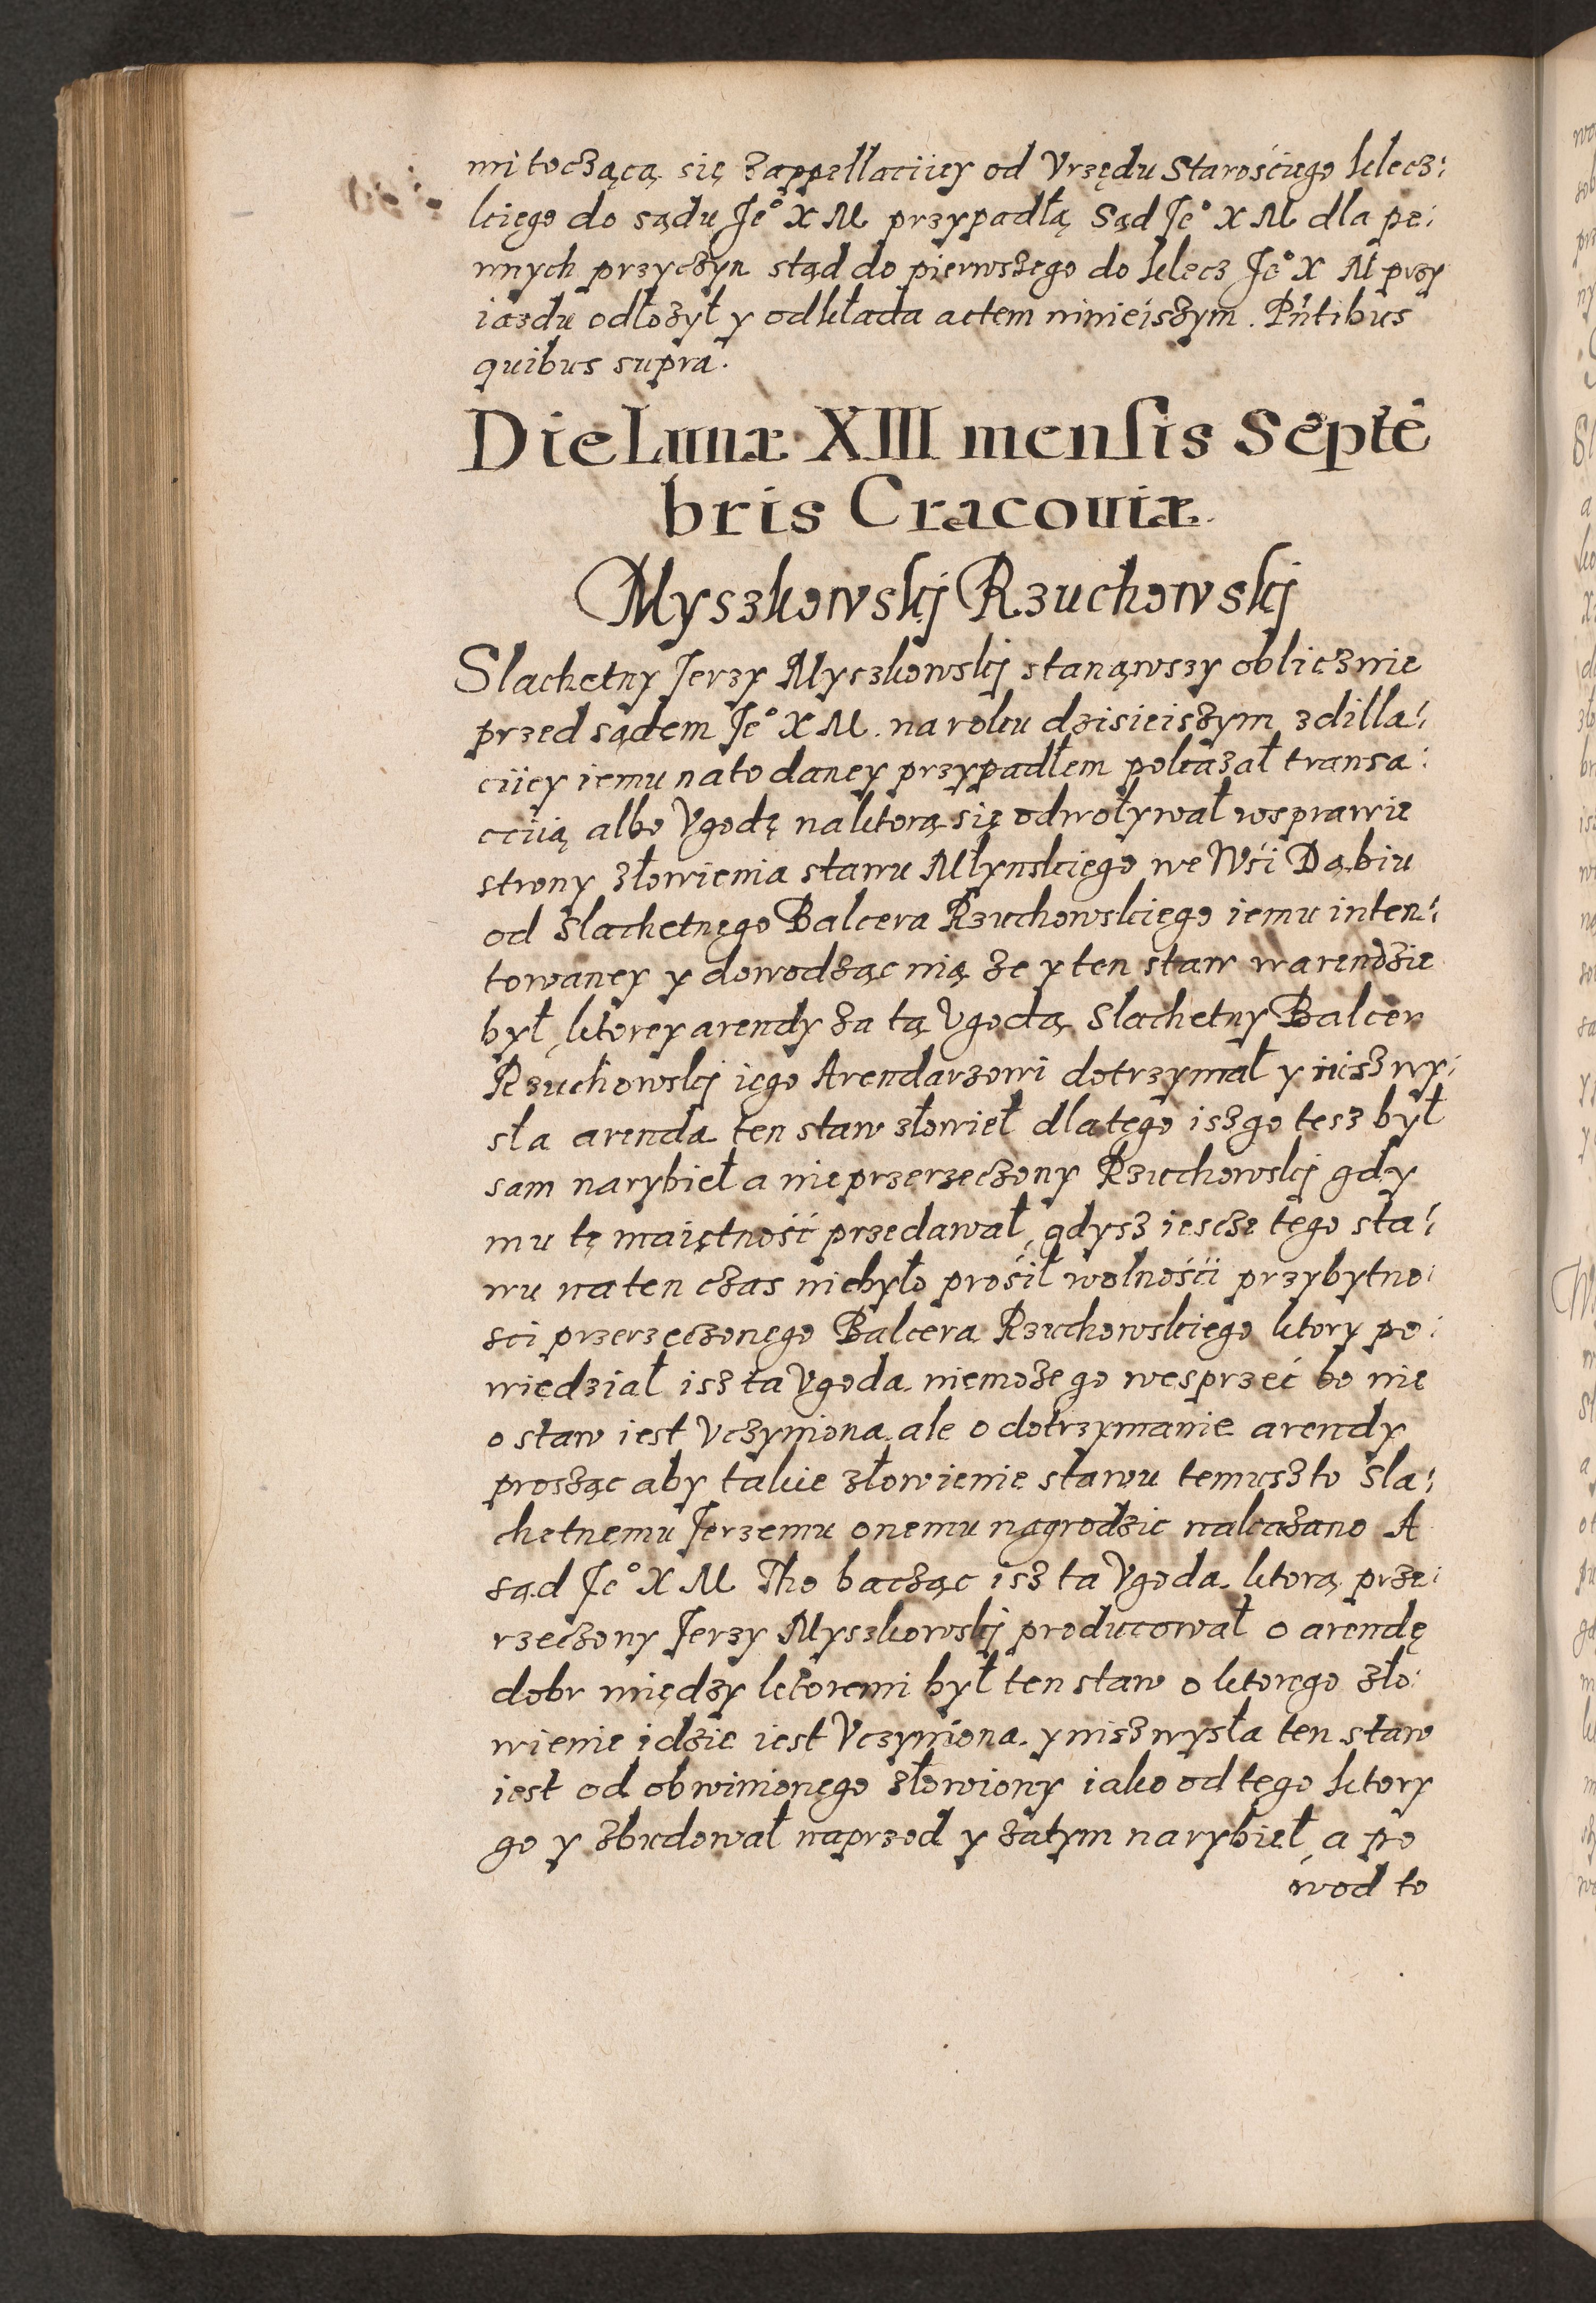 mi toczącą się zappellaciiey od Vrzędu Starośćiego Klecz:
kięgo do sądu Jeº X M przypadłą Sąd Jeº X M dla pe:
wnych przyczyn stąd do pierwszego do Klecz Jeº X M przy
iazdu odłożył y odkłada actem ninieiszym. Pńtibus
quibus supra.
Die Lunæ XIII mensis Septē
bris Cracouiæ.
Myszkowskj Rzuchowskj
Slachetny Jerzy Myszkowskj stanąwszy oblicznie
przed sądem Jeº X M. na roku dzisieiszym z dilla:
ciiey iemu na to daney przypadłem pokazał transa:
cciią albo Vgodę na ktorą się odwoływał w sprawie
strony złowienia stawu Młynskięgo we Wśi Dąbiu
od Slachetnęgo Balcera Rzuchowskięgo iemu inten:
towaney y dowodząc nią że y ten staw w arendzie
był, ktorey arendy za tą Vgodą Slachetny Balcer
Rzuchowskj ięgo Arendarzowi dotrzymał y nisz wy:
sła arenda ten staw złowieł dla tęgo isz go tesz był
sam narybieł a nie przerzeczony Rzuchowskj gdy
mu tę maiętność przedawał, gdysz iescze tęgo sta:
wu na ten czas niebyło prośił wolnośći przy bytno:
sci przerzeczonęgo Balcera Rzuchowskięgo ktory po:
wiedział isz ta Vgoda niemoże go wesprzeć bo nie
o staw iest Vczyniona ale o dotrzymanie arendy
prosząc aby takie złowienie stawu temuszto Sla:
chetnemu Jerzemu onemu nagrodzic nakazano A
sąd Jeº X M Tho bacząc isz ta Vgoda ktorą prze:
rzeczony Jerzy Myszkowskj producował o arendę
dobr między ktoremi był ten staw o ktoręgo zło:
wienie idzie iest Vczyniona y nisz wysła ten staw
iest od obwinionęgo złowiony iako od tęgo ktory
go y zbudował naprzod y zatym narybieł, a po
wod to